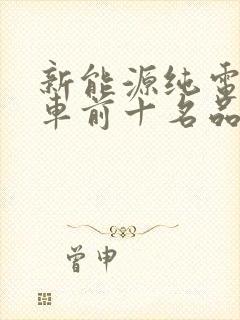 新能源纯电
车前十名品
曾申